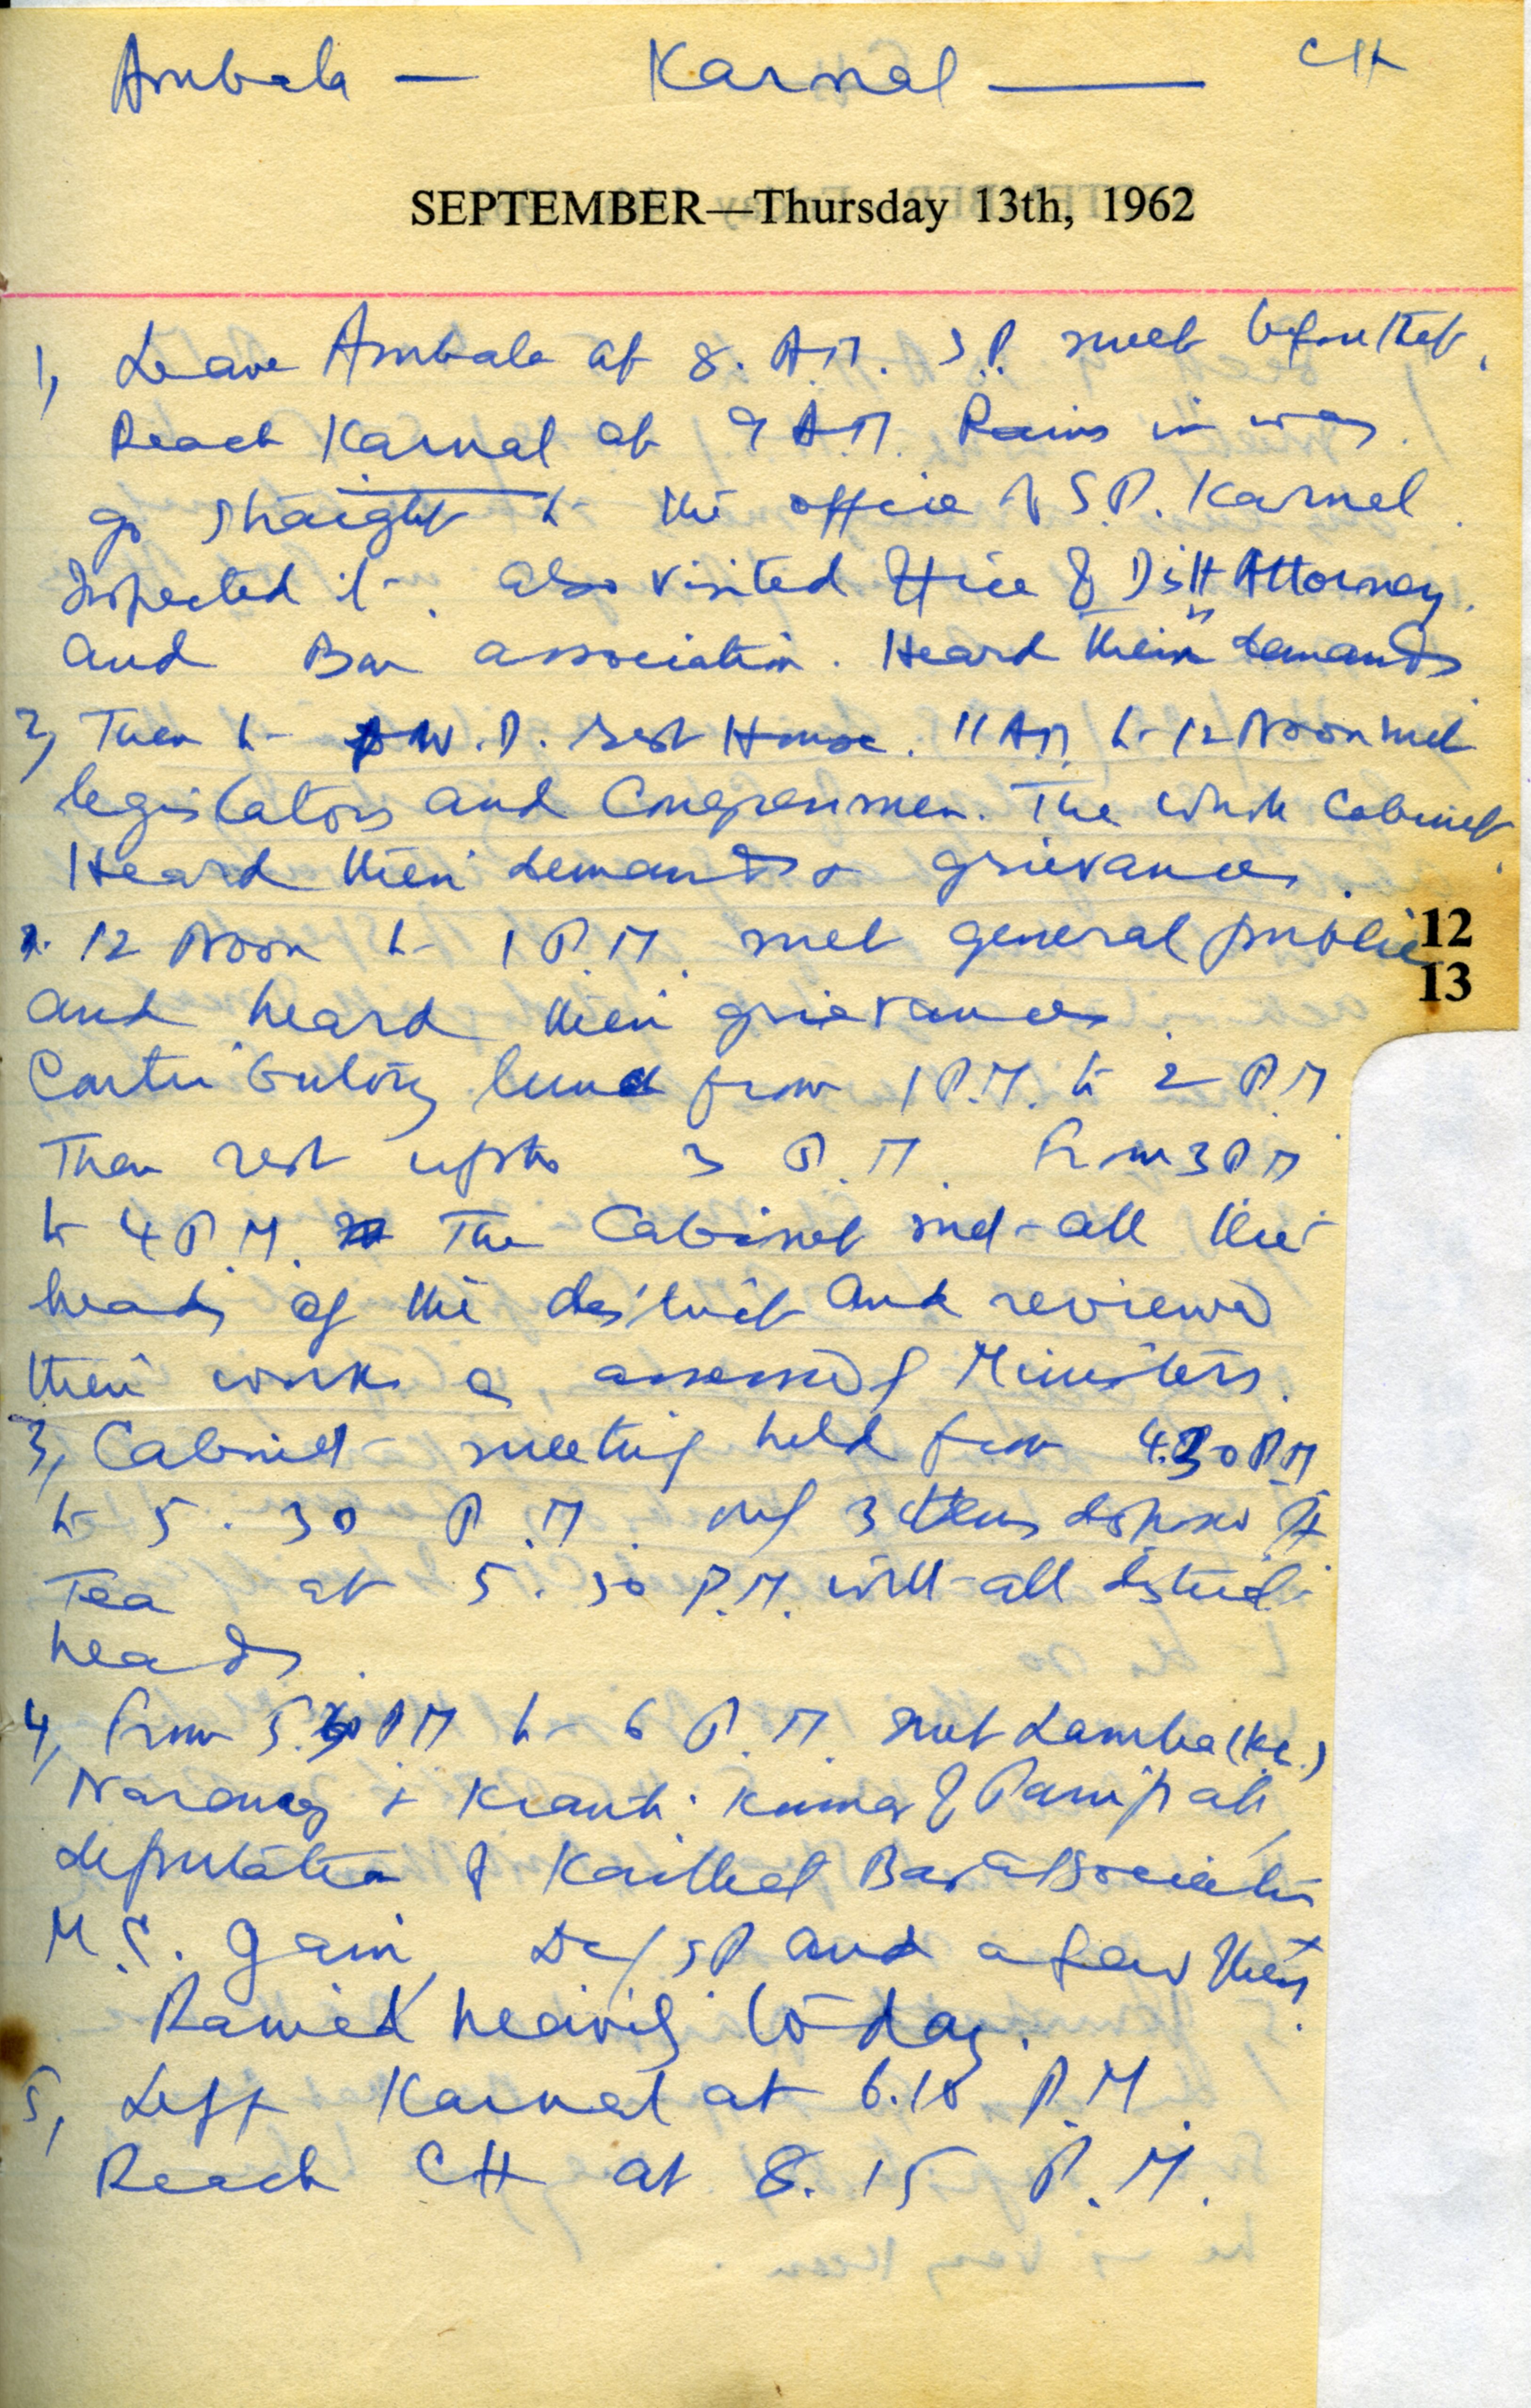 Ambala — Karnal — CH
SEPTEMBER—Thursday 13th, 1962
1, Leave Ambala at 8. A.M. S.P. meet before that.
Reach Karnal at 9 A.M. Rains in way.
go straight to the office of S.P. Karnal.
Inspected it. also visited Office of Distt Attorney.
and Bar association. Heard their demands
2, Then to P.W.D. rest House. 11 AM to 12 Noon met
legislators and Congressmen. The whole Cabinet
Heard their demands & grievances.
12 Noon to 1 P.M. met general public
and heard their grievances.
Contributory lunch from 1 P.M. to 2 P.M
Then rest upto 3 P.M. From 3 P M
to 4 P.M. The Cabinet met all the
heads of the district and reviewed
their work & Ministers.
3, Cabinet meeting held from 4.30 PM
to 5.30 P.M. only 3 items disposed off
Tea at 5.30 P.M. with all district
heads.
4, From 5. PM to 6 P.M. met Lamba
Narang & Kranti Kumar of Panipat,
deputation of Kaithal Bar association
M.C. Jain, Dy/SP and a few others.
Rained heavily to-day.
5, Left Karnal at 6.10 P.M.
Reach CH at 8.15 P.M.
12
13